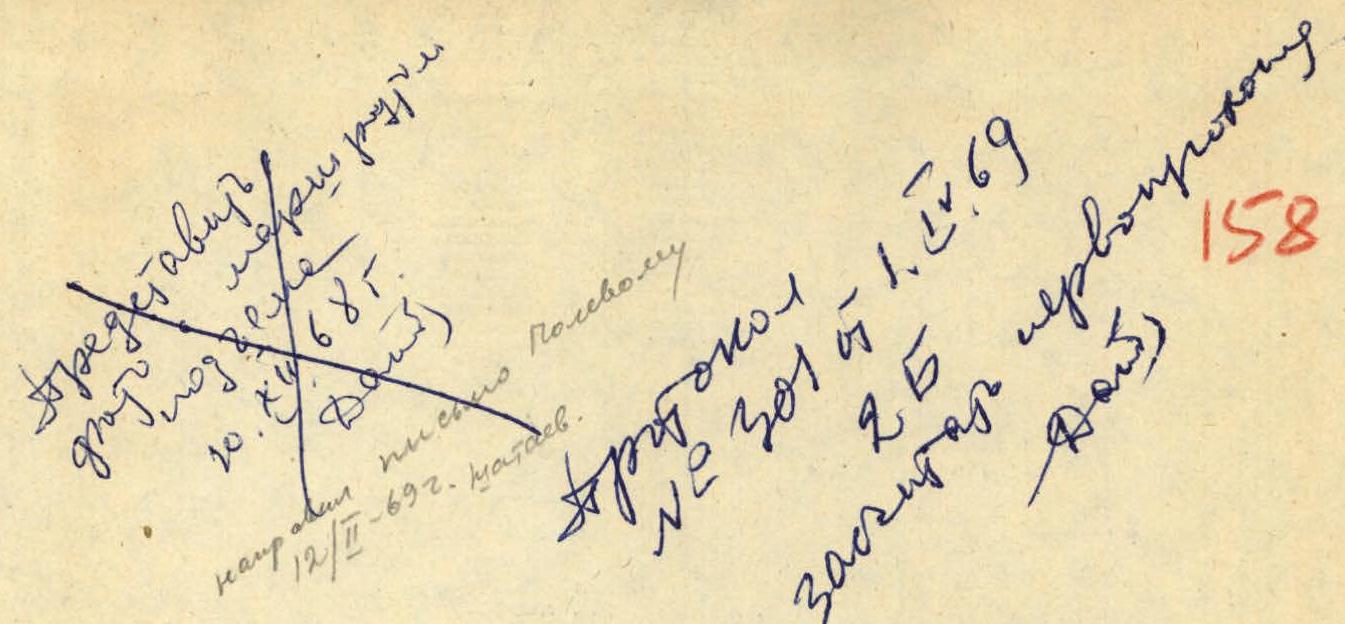 Представить
фото маршрута
подъема
10.XII 68 г.
направил письмо Полевому
12/II-69 г. Шатаев.
Протокол
№ 301 от 1.IV.69
2Б
засчитать первопроход
158